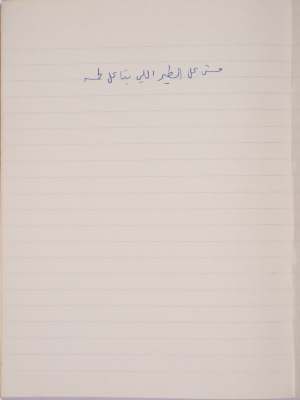 مش كل الطير اللي يتاكل لحمه